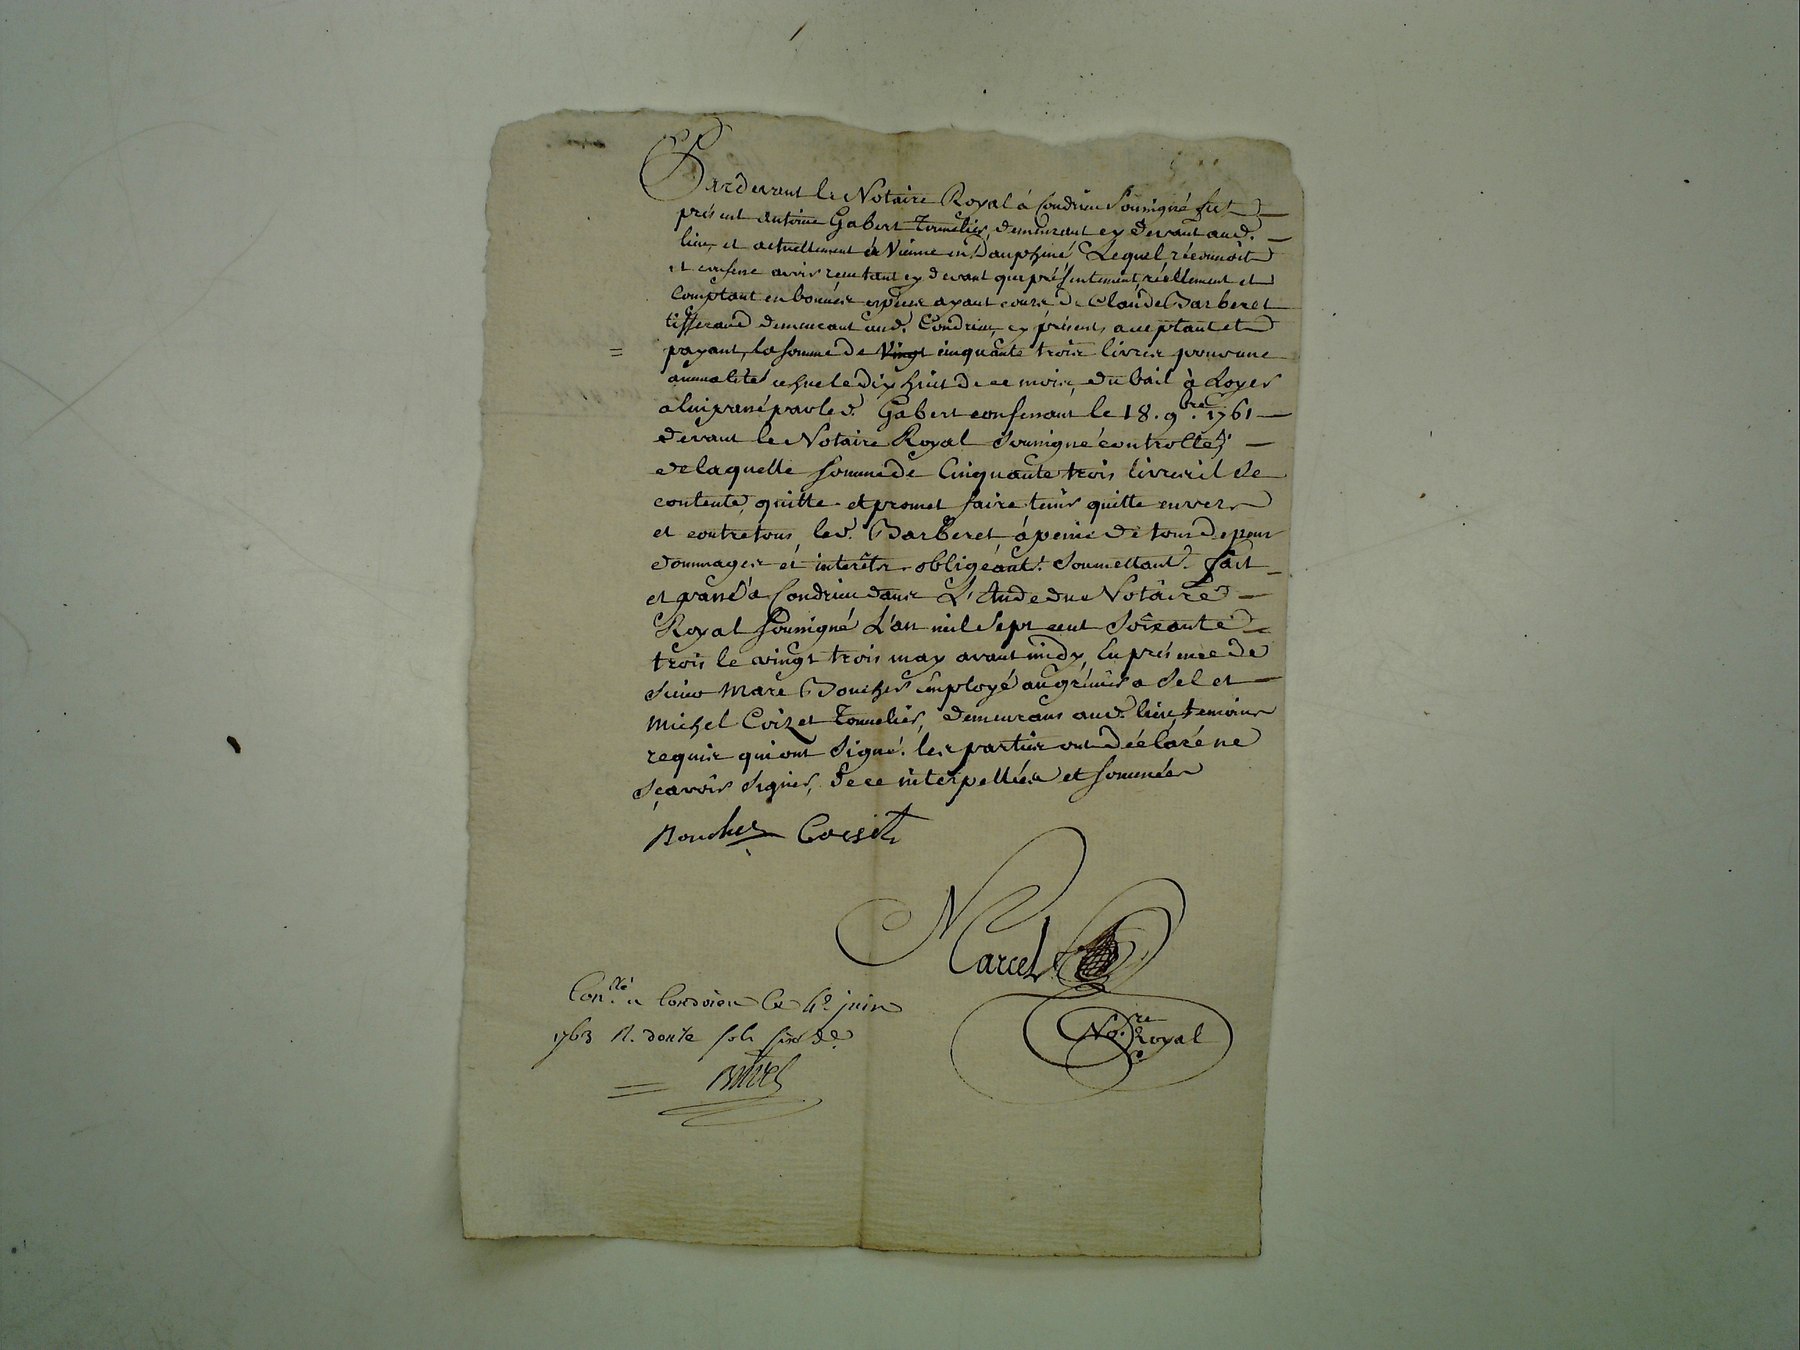 Pardevant le Notaire Royal à Condrieu Soussigné fut
présent Antoine Gabert Tonnelier, demeurant cy devant aud.
lieu, et actuellement à Vienne en Dauphiné Lequel réconnoit
et confesse avoir reçu tant cy devant que présentement, réellement et
Comptant en bonnes espèces ayant cours de Claude Barberet
tisserand demeurant aud. Condrieu, cy présent, acceptant et
payant, la somme de Vingt cinquante trois livres pour une
annualité échue le dix huit de ce mois, du bail à Loyer
a lui passé par led. Gabert confessant le 18. 9.bre 1761
devant le Notaire Royal Soussigné controllé;
de laquelle somme de Cinquante trois livres il se
contente, quitte et promet faire tenir quitte envers
et contre tous led. Barberet, à peine de tous depens
dommages et interêts. obligeant. Soumettant. fait
et passé à Condrieu dans L'Etude du Notaire
Royal Soussigné L'an mil Sept cent Soixante
trois le vingt trois may avant midy, En présence de
Sieur Marc Boucher employé au grenier a Sel et
Michel Coizet Tonnelier, demeurans aud. lieu, temoins
requis qui ont Signé. les parties ont déclaré ne
sçavoir signer, de ce interpellées et sommées
Boucher Coiset
Marcel
No.re Royal
Con.llé a Condrieu Ce 4e juin
1763 R. douze sols six de.